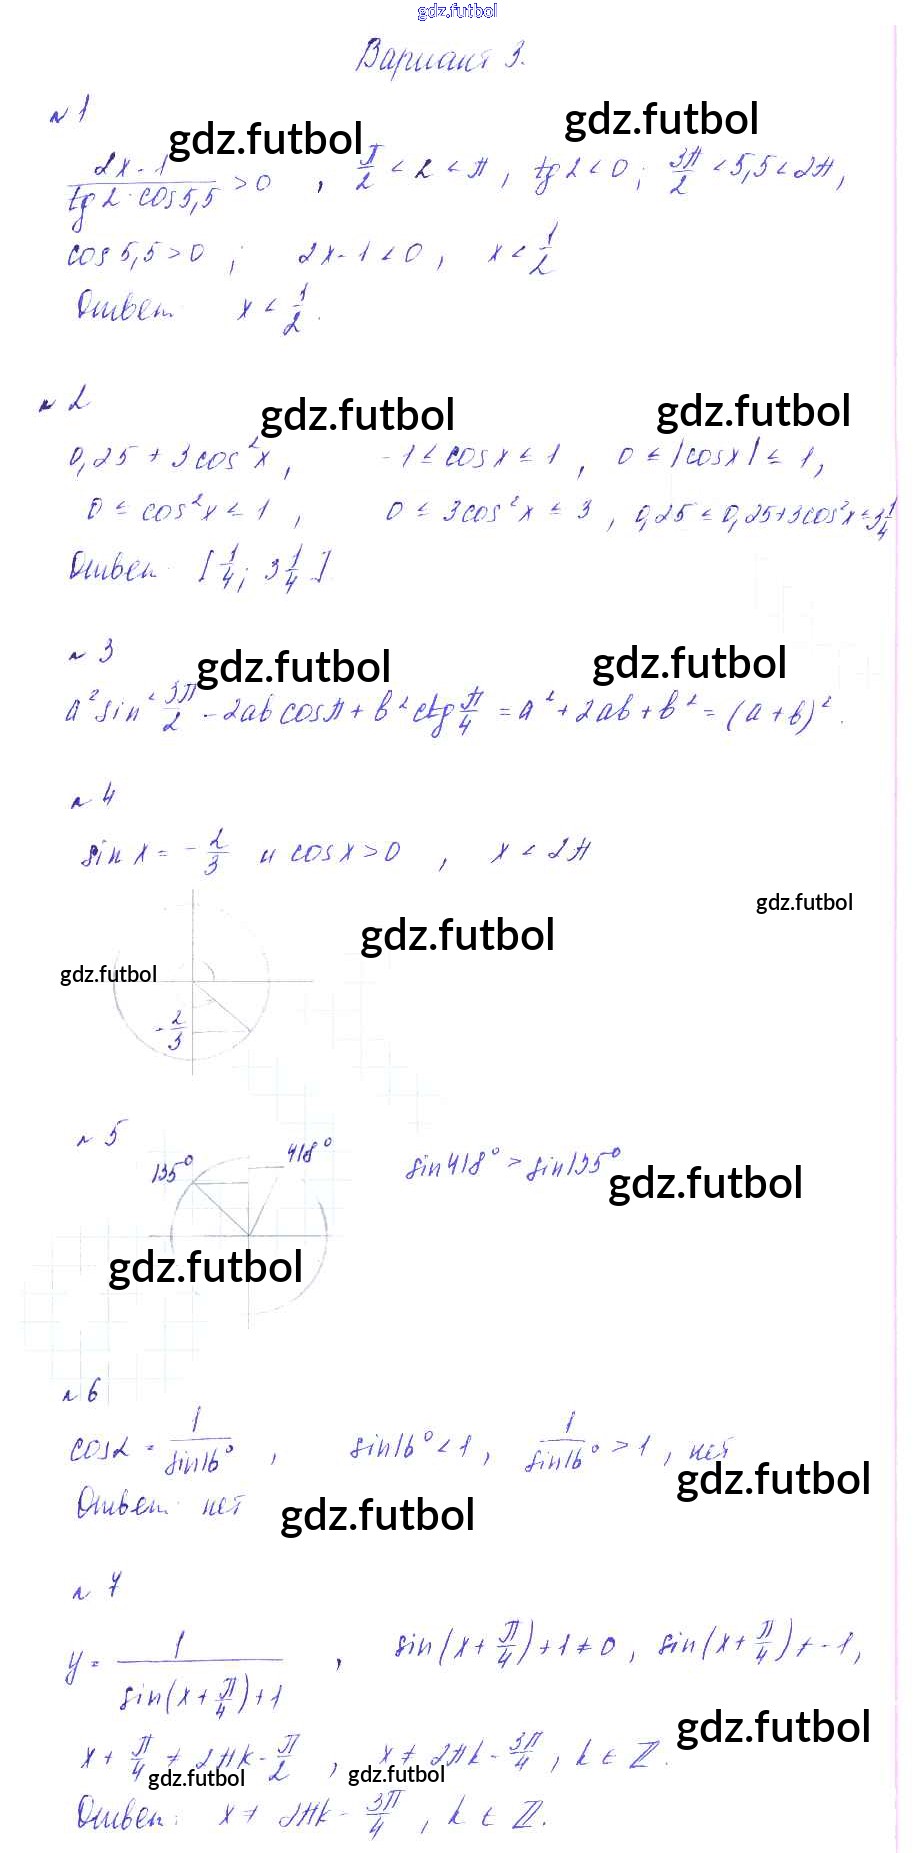 gdz.futbol
Вариант 3.
№ 1
gdz.futbol gdz.futbol
(2x - 1)/(tg 2 · cos 5,5) > 0 , π/2 < 2 < π , tg 2 < 0 ; 3π/2 < 5,5 < 2π ,
cos 5,5 > 0 ; 2x - 1 < 0 , x < 1/2
Ответ: x < 1/2 .
№ 2
gdz.futbol gdz.futbol
0,25 + 3cos²x , -1 ≤ cos x ≤ 1 , 0 ≤ |cos x| ≤ 1 ,
0 ≤ cos²x ≤ 1 , 0 ≤ 3cos²x ≤ 3 , 0,25 ≤ 0,25+3cos²x ≤ 3 1/4
Ответ: [1/4 ; 3 1/4]
№ 3
gdz.futbol gdz.futbol
a² sin² 3π/2 - 2ab cos π + b² ctg π/4 = a² + 2ab + b² = (a + b)² .
№ 4
sin x = - 2/3 и cos x > 0 , x < 2π
gdz.futbol
gdz.futbol
gdz.futbol
- 2/3
№ 5
135° 418° sin 418° > sin 135°
gdz.futbol
gdz.futbol
№ 6
cos α = 1/sin 16° , sin 16° < 1 , 1/sin 16° > 1 , нет
gdz.futbol
Ответ: нет
gdz.futbol
№ 7
y = 1/(sin(x + π/4) + 1) , sin(x + π/4) + 1 ≠ 0 , sin(x + π/4) ≠ -1 ,
gdz.futbol
x + π/4 ≠ 2πk - π/2 , x ≠ 2πk - 3π/4 , k ∈ ℤ .
gdz.futbol gdz.futbol
Ответ: x ≠ 2πk - 3π/4 , k ∈ ℤ .